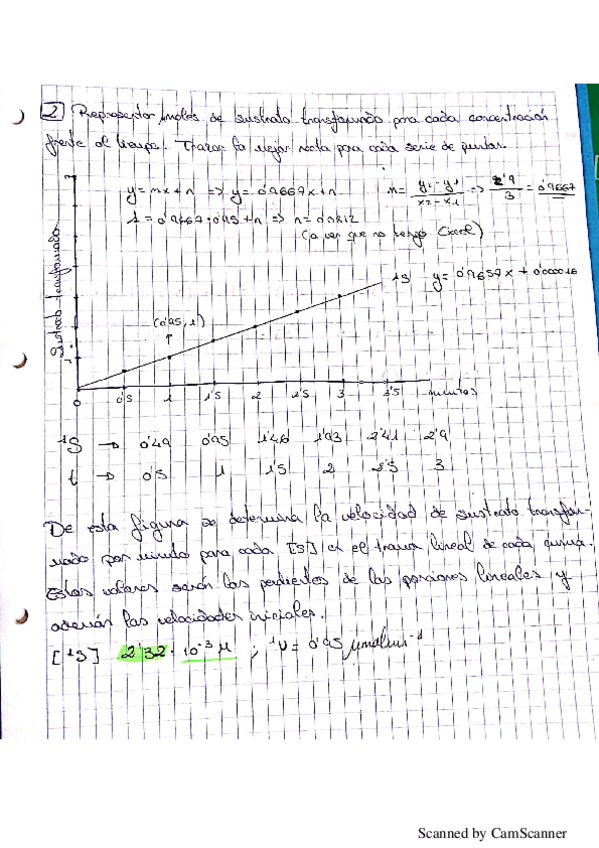 2 Representar μmoles de sustrato transformado para cada concentración
frente al tiempo. Trazar la mejor recta para cada serie de puntos.
y = mx + n => y = 0'9667x + n
m = y2 - y1 / x2 - x1 => 2'9 / 3 = 0'9667
1 = 0'9667 · 0'95 + n => n = 0'0812
(a ver que no tengo Excel)
Sustrato transformado
1S y = 0'9657x + 0'000016
(0'95, 1)
1
0 0'5 1 1'5 2 2'5 3 3'5 minutos
1S → 0'49 0'95 1'46 1'93 2'41 2'9
t → 0'5 1 1'5 2 2'5 3
De esta figura se determina la velocidad de sustrato transfor-
mado por minuto para cada [S] el tramo lineal de cada curva.
Estos valores serán las pendientes de las porciones lineales y
serán las velocidades iniciales.
[1S] 2'32 · 10-3 M ; 1V = 0'95 μmol min-1
Scanned by CamScanner